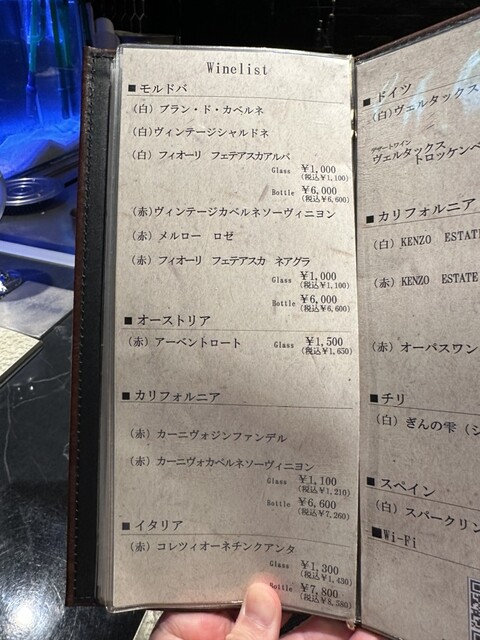 Winelist
■モルドバ
(白) ブラン・ド・カベルネ
(白)ヴィンテージシャルドネ
(白) フィオーリ フェテアスカアルバ
Glass ¥1,000
(税込¥1,100)
Bottle ¥6,000
(税込¥6,600)
(赤)ヴィンテージカベルネソーヴィニヨン
(赤) メルロー ロゼ
(赤) フィオーリ フェテアスカ ネアグラ
Glass ¥1,000
(税込¥1,100)
Bottle ¥6,000
(税込¥6,600)
■オーストリア
(赤) アーベントロート Glass ¥1,500
(税込¥1,650)
■カリフォルニア
(赤) カーニヴォジンファンデル
(赤) カーニヴォカベルネソーヴィニヨン
Glass ¥1,100
(税込¥1,210)
Bottle ¥6,600
(税込¥7,260)
■イタリア
(赤) コレツィオーネチンクアンタ
Glass ¥1,300
(税込¥1,430)
Bottle ¥7,800
(税込¥8,580)
■ドイツ
(白)ヴェルタックス
デザートワイン
ヴェルタックス
トロッケンベ
■カリフォルニア
(白) KENZO ESTATE
(赤) KENZO ESTATE
(赤) オーパスワン
■チリ
(白) ぎんの雫 (シ
■スペイン
(白) スパークリン
■Wi-Fi